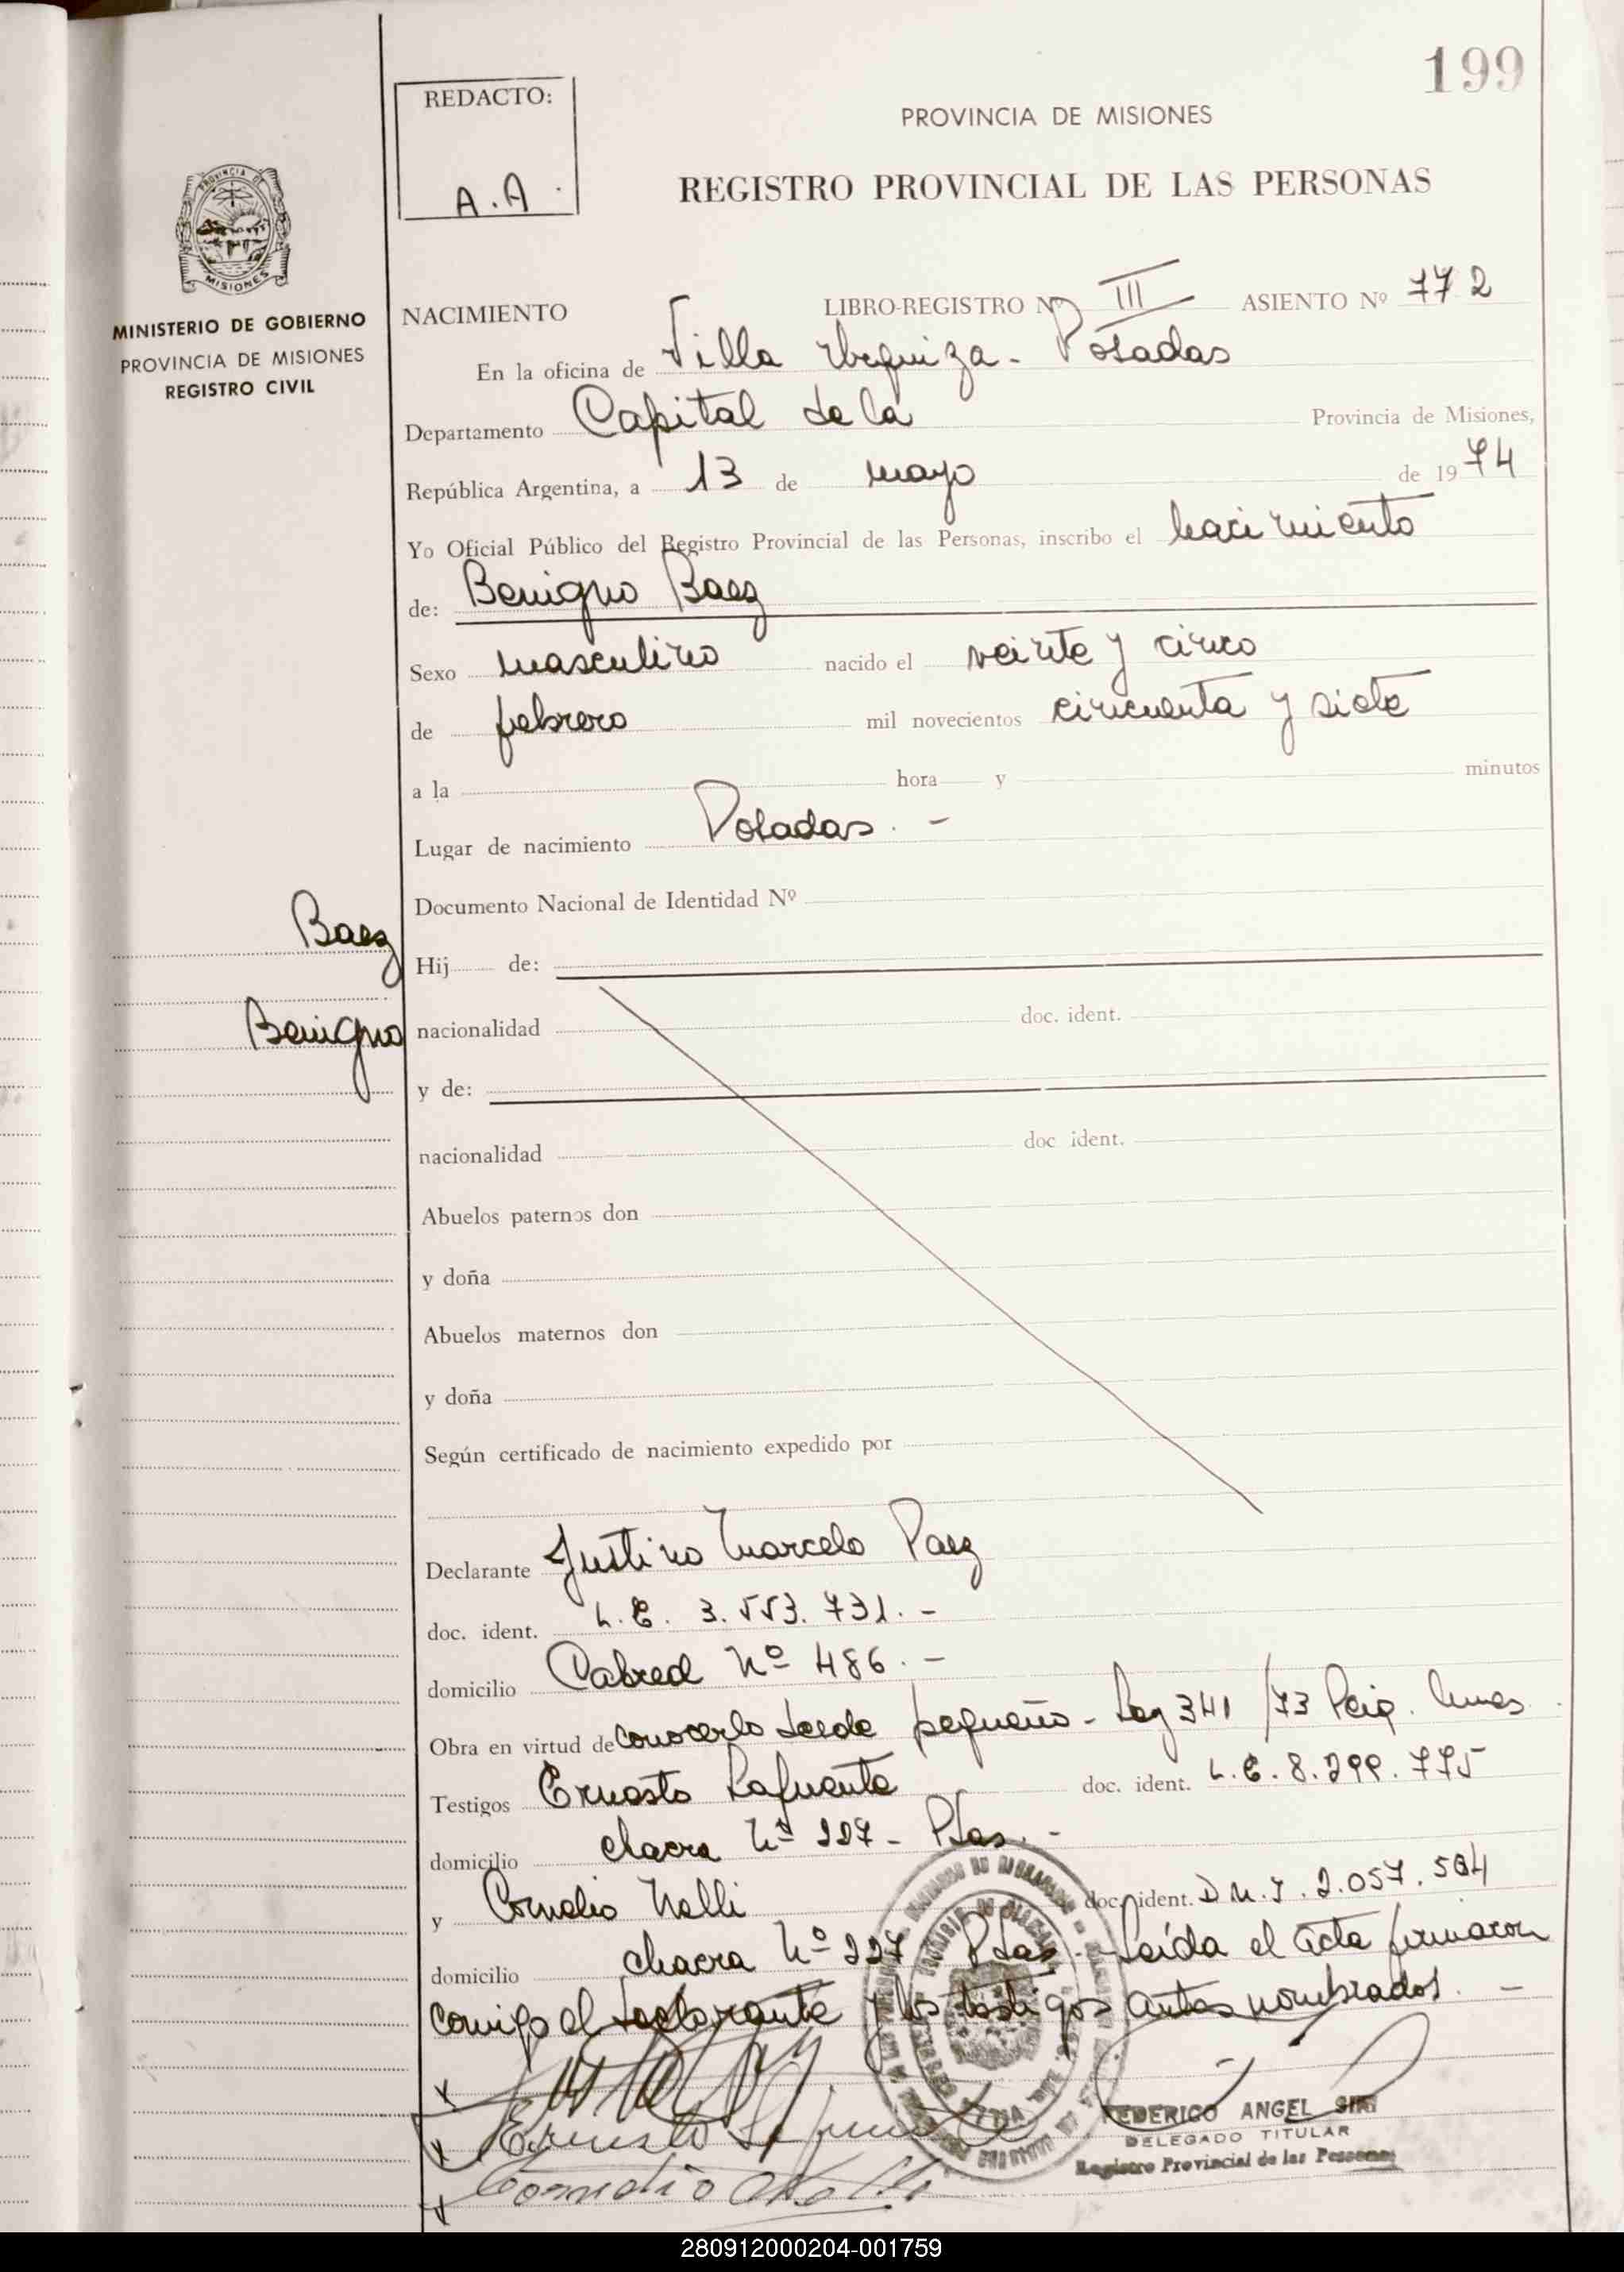 199
REDACTO:
A.A.
PROVINCIA DE MISIONES
REGISTRO PROVINCIAL DE LAS PERSONAS
PROVINCIA DE
MISIONES
MINISTERIO DE GOBIERNO
PROVINCIA DE MISIONES
REGISTRO CIVIL
NACIMIENTO LIBRO-REGISTRO Nº III ASIENTO Nº 772
En la oficina de Villa Urquiza - Posadas
Departamento Capital de la Provincia de Misiones,
República Argentina, a 13 de mayo de 1974
Yo Oficial Público del Registro Provincial de las Personas, inscribo el nacimiento
de: Benigno Baez
Sexo masculino nacido el veinte y cinco
de febrero mil novecientos cincuenta y siete
a la hora y minutos
Lugar de nacimiento Posadas. -
Documento Nacional de Identidad Nº
Baez
Hij de:
Benigno
nacionalidad doc. ident.
y de:
nacionalidad doc ident.
Abuelos paternos don
y doña
Abuelos maternos don
y doña
Según certificado de nacimiento expedido por
Declarante Justino Marcelo Paez
doc. ident. L.E. 3.553.731. -
domicilio Cabred Nº 486. -
Obra en virtud de conocerlo desde pequeño - Ley 341/73
Testigos Ernesto Lafuente doc. ident. L.E. 8.299.775
domicilio chacra Nº 227 - Pdas. -
y Cornelio Nelli doc. ident. D.N.I. 2.057.504
domicilio chacra Nº 227 Pdas. - Leída el acta firmaron
conmigo el declarante y los testigos antes nombrados. -
Ernesto Lafuente
Cornelio
FEDERICO ANGEL SIRI
DELEGADO TITULAR
Registro Provincial de las Personas
280912000204-001759